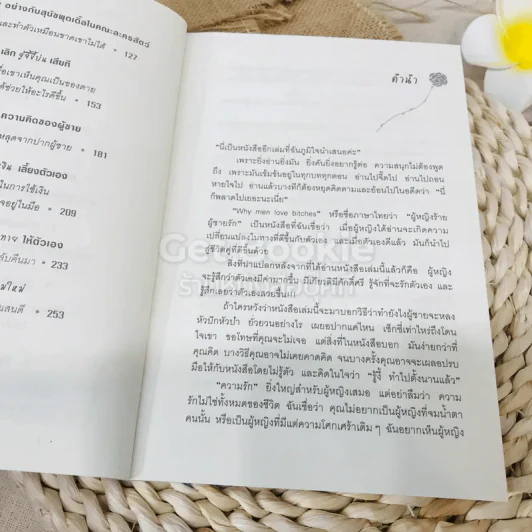 อย่างกับสุนัขพุดเดิ้ลในคณะละครสัตว์
และทำตัวเหมือนขาดเขาไม่ได้ • 127
เลิก จู้จี้ขี้บ่น เสียที
ื่อเขาเห็นคุณเป็นของตาย
ช่วยให้อะไรดีขึ้น • 153
ความคิดของผู้ชาย
หลุดจากปากผู้ชาย • 181
เลี้ยงตัวเอง
ในการใช้เงิน
อยู่ในมือ • 209
ให้ตัวเอง
กลับคืนมา • 233
ใหม่
แสนดี • 253
คำนำ
"นี่เป็นหนังสืออีกเล่มที่ฉันภูมิใจนำเสนอค่ะ"
เพราะยิ่งอ่านยิ่งมัน ยิ่งคันยิ่งอยากรู้ต่อ ความสนุกไม่ต้องพูด
ถึง เพราะมันเข้มข้นอยู่ในทุกบททุกตอน อ่านไปจี๊ดไป อ่านไปถอน
หายใจไป อ่านแล้วบางทีก็ต้องหยุดคิดตามและย้อนไปในอดีตว่า "นี่
ก็พลาดไปเยอะนะเนี่ย"
"Why men love bitches" หรือชื่อภาษาไทยว่า "ผู้หญิงร้าย
ผู้ชายรัก" เป็นหนังสือที่ฉันเชื่อว่า เมื่อผู้หญิงได้อ่านจะเกิดความ
เปลี่ยนแปลงในทางที่ดีขึ้นกับตัวเอง และเมื่อตัวเองดีแล้ว มันก็นำไป
สู่ชีวิตคู่ที่ดีขึ้นด้วย
สิ่งที่น่าแปลกหลังจากที่ได้อ่านหนังสือเล่มนี้แล้วก็คือ ผู้หญิง
จะรู้สึกว่าตัวเองมีค่ามากขึ้น มีเกียรติมีศักดิ์ศรี รู้จักที่จะรักตัวเอง และ
รู้สึกเลยว่าตัวเองสวยขึ้น!!!
ถ้าใครหวังว่าหนังสือเล่มนี้จะมาบอกวิธีว่าทำยังไงผู้ชายจะหลง
หัวปักหัวปำ ยั่วยวนอย่างไร เผยอปากแค่ไหน เซ็กซี่เท่าไหร่ถึงโดน
ใจเขา ขอโทษที่คุณจะไม่เจอ แต่สิ่งที่ในหนังสือบอก มันง่ายกว่าที่
คุณคิด บางวิธีคุณอาจไม่เคยคาดคิด จนบางครั้งคุณอาจจะเผลอปรบ
มือให้กับหนังสือโดยไม่รู้ตัว และคิดในใจว่า "รู้งี้ ทำไปตั้งนานแล้ว"
"ความรัก" ยิ่งใหญ่สำหรับผู้หญิงเสมอ แต่อย่าลืมว่า ความ
รักไม่ใช่ทั้งหมดของชีวิต ฉันเชื่อว่า คุณไม่อยากเป็นผู้หญิงที่จมน้ำตา
คนนั้น หรือเป็นผู้หญิงที่มีแต่ความโศกเศร้าเดิม ๆ ฉันอยากเห็นผู้หญิง
Get Bookie